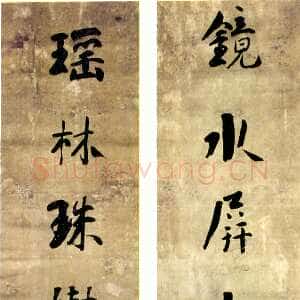 鏡水屏
瑶林珠
Shufawang.CN